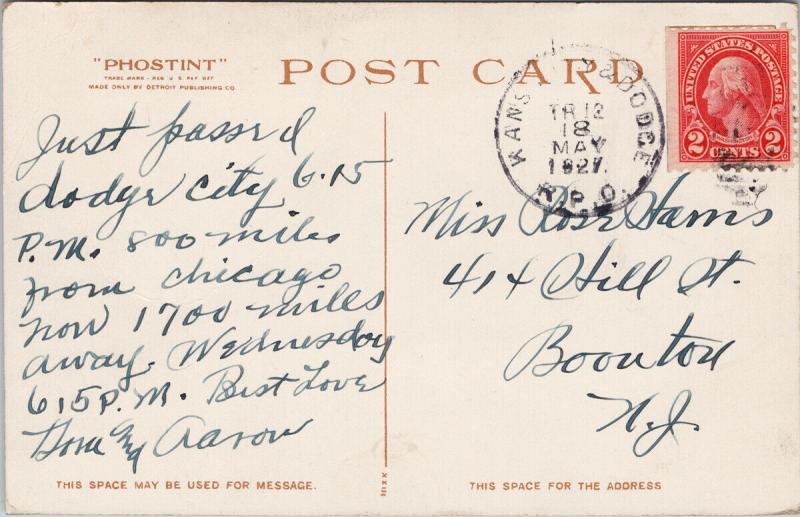 "PHOSTINT"
TRADE MARK - REG U S PAT OFF
MADE ONLY BY DETROIT PUBLISHING CO.
POST CARD
KANS & DODGE
TR 12
18
MAY
1927
R.P.O.
UNITED STATES POSTAGE
WASHINGTON
2 CENTS 2
Just passed
dodge city 6.15
P.M. 800 miles
from chicago
now 1700 miles
away. Wednesday
6,15 P.M. Best Love
and Aaron
Miss Rose Harris
414 Hill St.
Boonton
N.J.
THIS SPACE MAY BE USED FOR MESSAGE.
THIS SPACE FOR THE ADDRESS